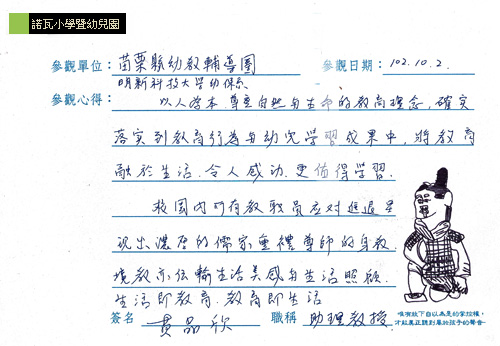 諾瓦小學暨幼兒園
參觀單位：苗栗縣幼教輔導團 參觀日期：102.10.2.
明新科技大學幼保系
參觀心得：以人為本、尊重自然與生命的教育理念，確實
落實到教育行為與幼兒學習成果中，將教育
融於生活，令人感動，更值得學習。
校園內所有教職員應对進退呈
現出濃厚的儒家重禮尊師的身教，
境教亦傳輸生活美感与生活照顧，
生活即教育，教育即生活
簽名 黃品欣 職稱 助理教授
唯有放下自以為是的掌控權，
才能真正聽到屬於孩子的聲音